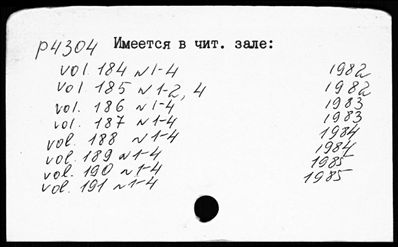 P4304 Имеется в чит. зале:
vol. 184 N1-4 1982
vol. 185 N1-2, 4 1982
vol. 186 N1-4 1983
vol. 187 N1-4 1983
vol. 188 N1-4 1984
vol. 189 N1-4 1984
vol. 190 N1-4 1985
vol. 191 N1-4 1985